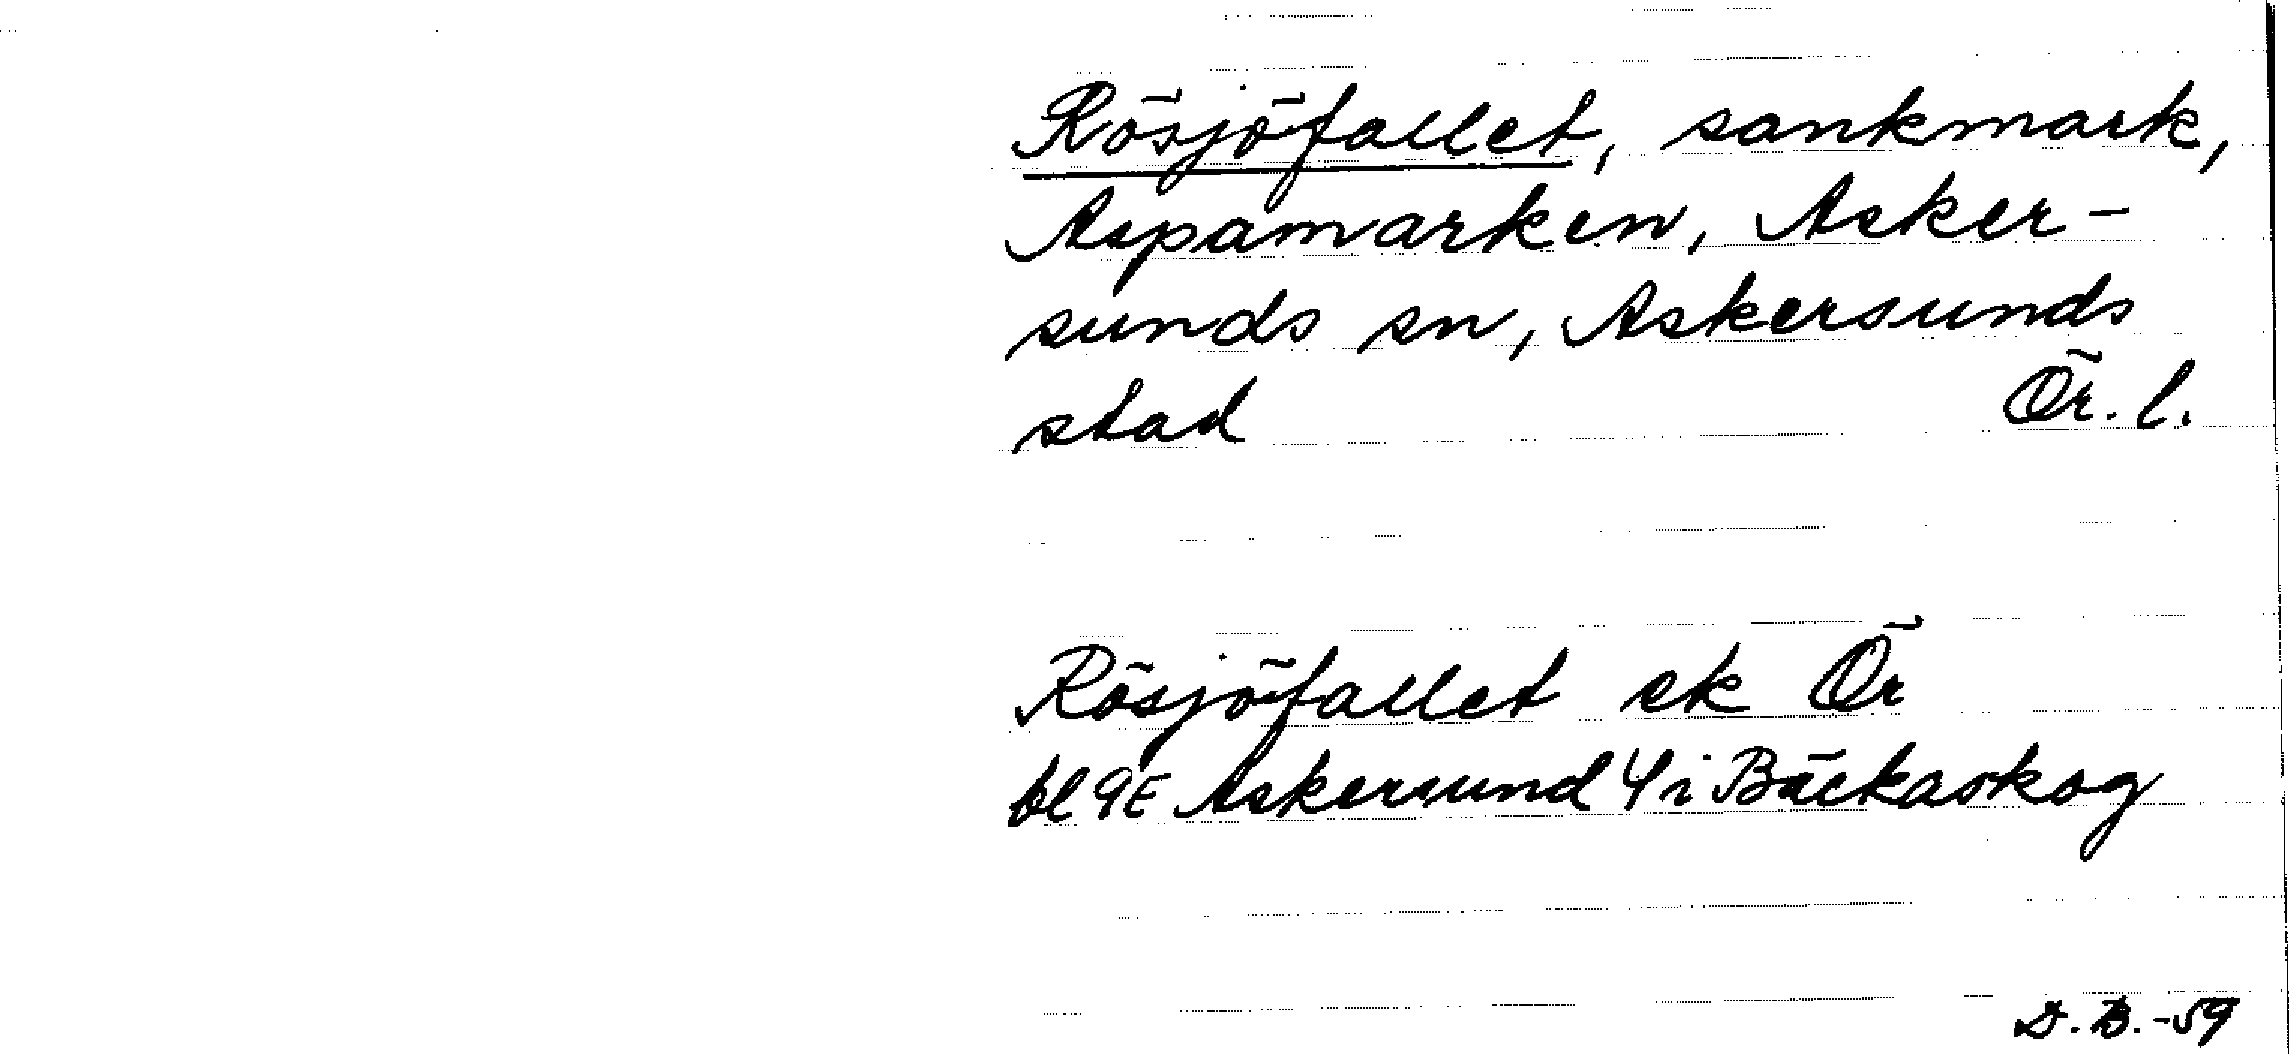 Rösjöfallet, sankmark,
Aspamarken, Asker-
sunds sn, Askersunds
stad Ör. l.
Rösjöfallet ek Ör
bl 9E Askersund 4i Bäckaskog
D.B.-59